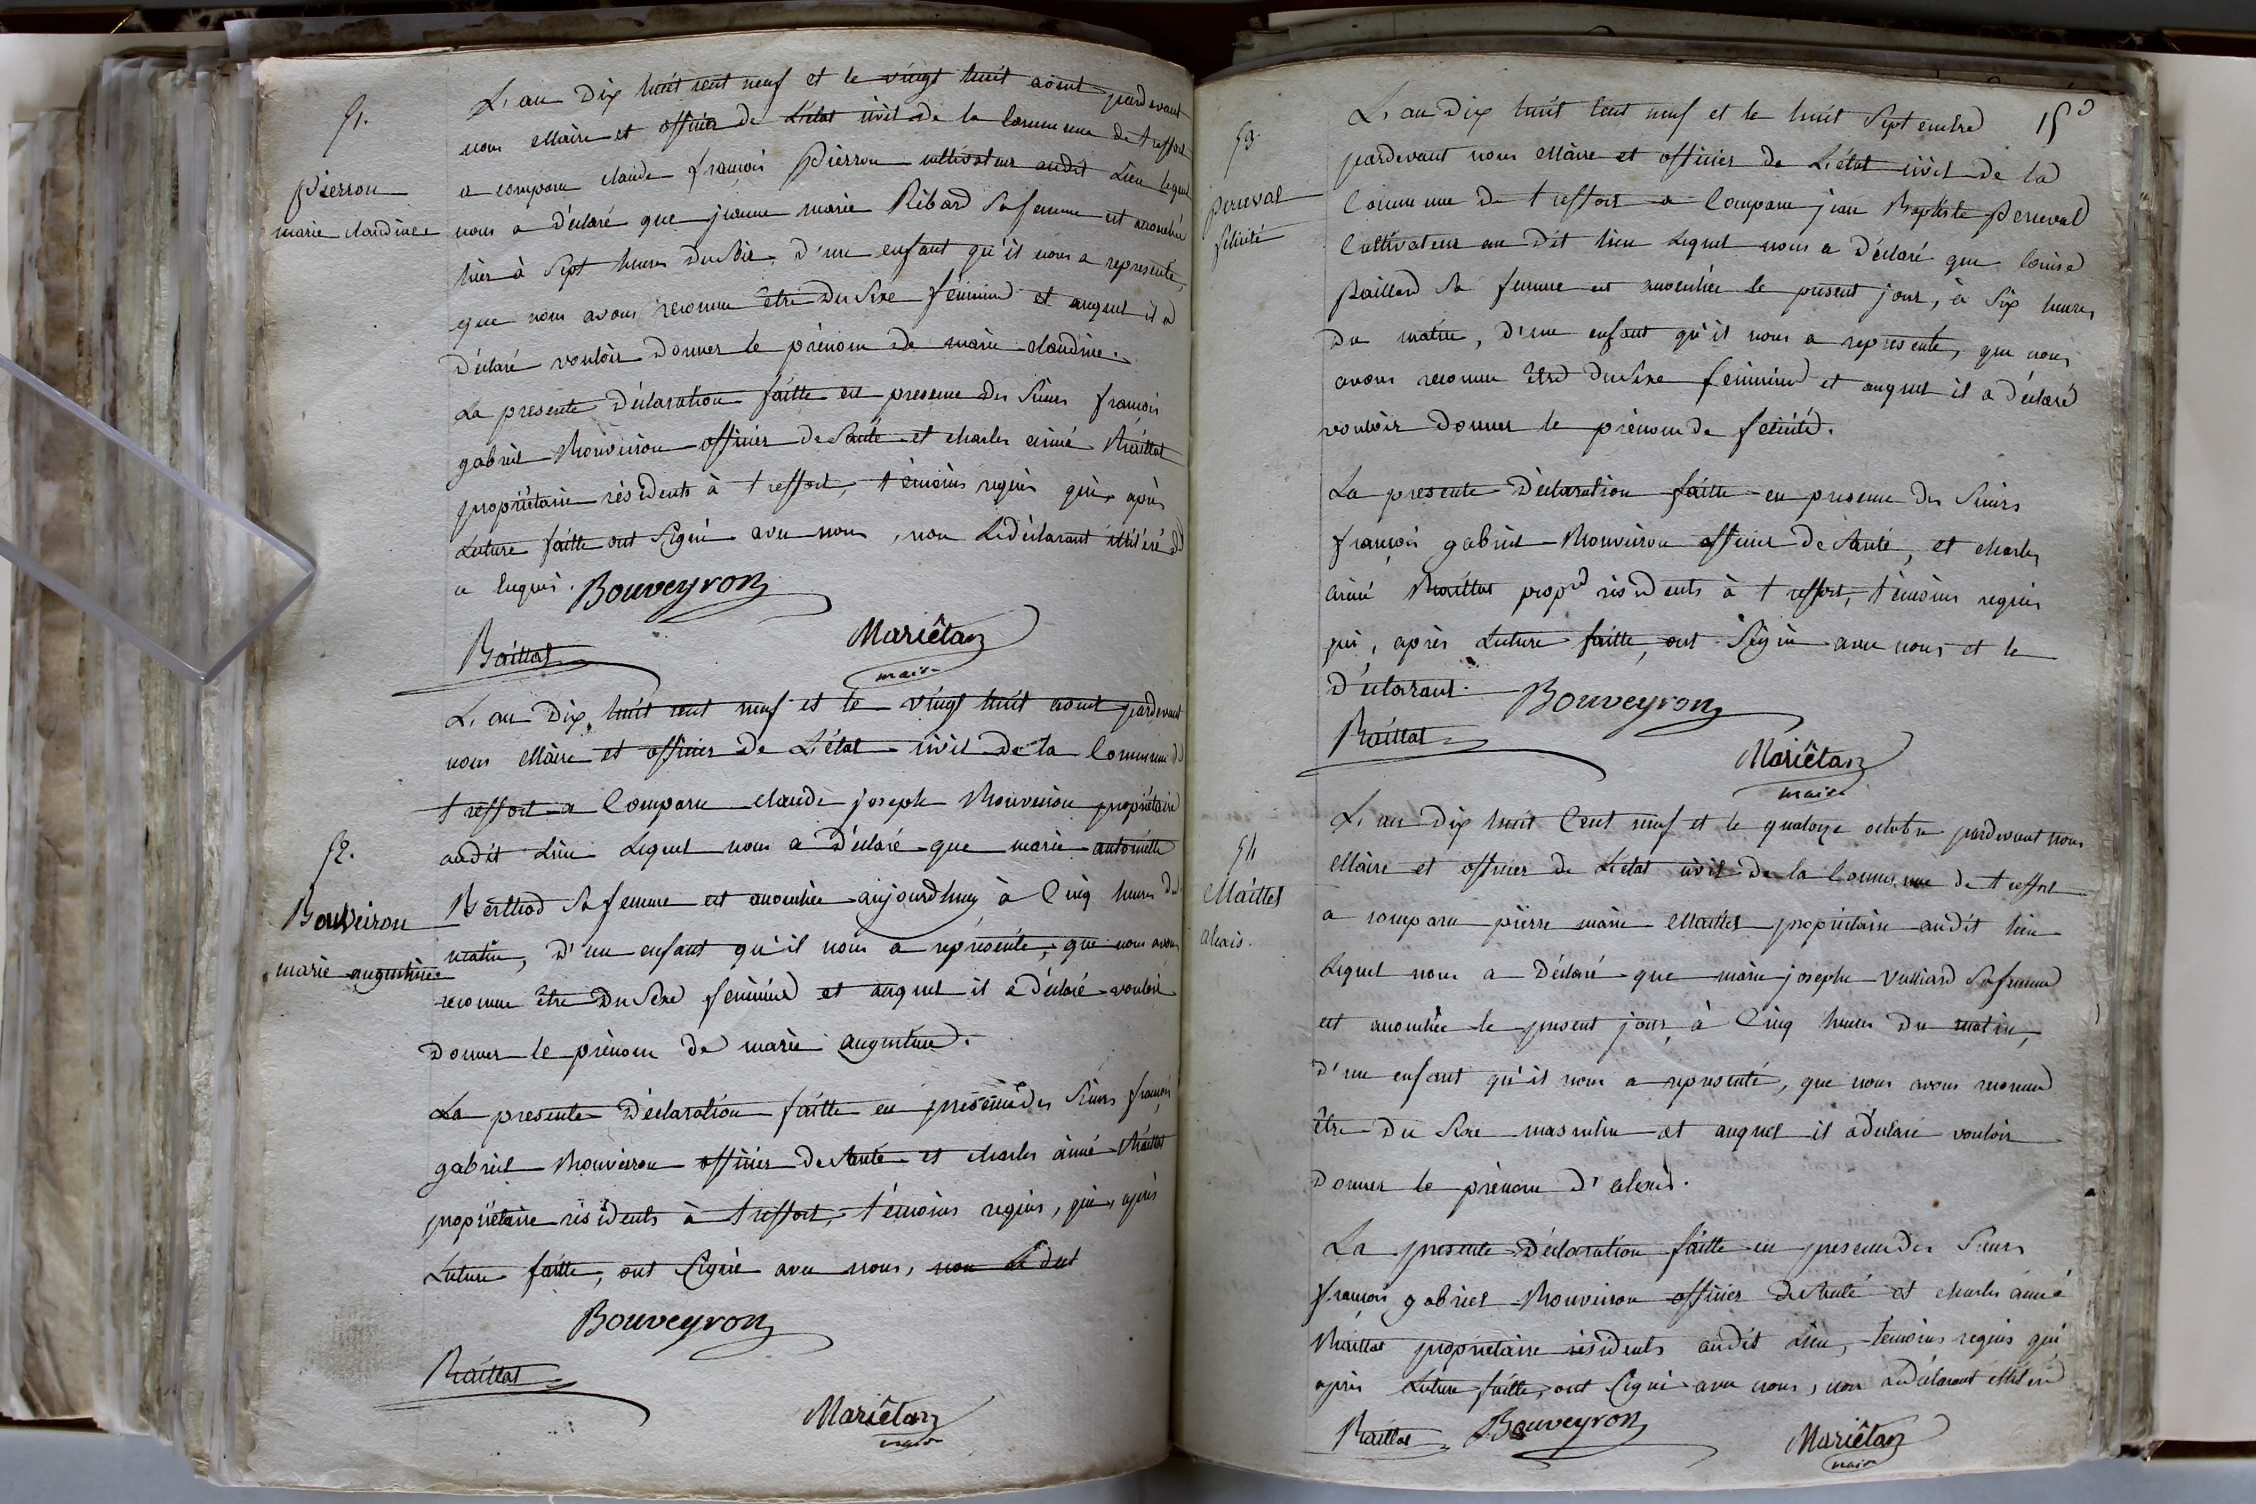 51.
Pierron
marie claudine
L'an Dix huit cent neuf et le vingt huit aout pardevant
nous Maire et officier de L'etat civil de la Commune de treffort
a comparu claude francois Pierron cultivateur audit Lieu lequel
nous a déclaré que jeanne marie Ribard Sa femme est accouchée
hier à Sept heures du Soir, d'un enfant qu'il nous a représenté,
que nous avons reconnu être du Sexe féminin et auquel il a
Déclaré vouloir Donner le prénom de marie claudine.
La presente Déclaration faitte en presence des Sieurs françois
gabriel Bouveiron officier de Santé et charles aimé Raillat
propriétaire résidents à treffort, témoins requis qui, après
Lecture faitte ont Signé avec nous, non Le déclarant illiteré de
ce Enquis.
Bouveyron
Raillat
Mariêtan
maire
52.
Bouveiron
marie augustine
L'an Dix huit cent neuf et le vingt huit aout pardevant
nous Maire et officier de L'état civil de la Commune de
treffort a Comparu claude joseph Bouveiron propriétaire
audit Lieu Lequel nous a Déclaré que marie antoinette
Berthod Sa femme est accouchée aujourdhuy à Cinq heures du
matin, D'un enfant qu'il nous a représenté, que nous avons
reconnu être Du Sexe féminin et auquel il a Déclaré vouloir
Donner le prénom de marie augustine.
La presente Déclaration faitte en présence des Sieurs françois
gabriel Bouveiron officier de Santé et charles aimé Raillat
propriétaire résidents à treffort, témoins requis, qui, après
Lecture faitte, ont Signé avec nous, non Le dect
Bouveyron
Raillat
Mariêtan
maire
53
perceval
félicité
L'an Dix huit Cent neuf et le huit Septembre
pardevant nous Maire et officier de L'état civil de la
Commune De treffort a Comparu jean Baptiste Perceval
Cultivateur au Dit lieu Lequel nous a Déclaré que louise
Paillard Sa femme est accouchée le présent jour, à Six heures
Du matin, D'un enfant qu'il nous a représenté, que nous
avons reconnu être du Sexe féminin et auquel il a Déclaré
vouloir Donner le prénom de félicité.
La presente Déclaration faitte en presence des Sieurs
françois gabriel Bouveiron officier de Santé, et charles
aimé Raillat propre résidents à treffort, témoins requis
qui, après Lecture faitte, ont Signé avec nous et le
Déclarant.
Bouveyron
Raillat
Mariêtan
maire
54
Maillet
alexis.
L'an Dix huit Cent neuf et le quatorze octobre pardevant nous
Maire et officier de L'etat civil de la Commune de treffort
a comparu pierre marie Maillet propriétaire audit lieu
Lequel nous a Déclaré que marie josephe Vuillard Sa femme
est accouchée le present jour, à Cinq heures Du matin,
D'un enfant qu'il nous a représenté, que nous avons reconnu
être Du Sexe masculin et auquel il a Déclaré vouloir
Donner le prénom D'alexis.
La presente Déclaration faitte en presence des Sieurs
françois gabriel Bouveiron officier de Santé et charles aimé
Raillat propriétaire résidents audit Lieu, témoins requis qui
après Lecture faitte, ont Signé avec nous, non Le déclarant illiteré
Raillat
Bouveyron
Mariêtan
maire